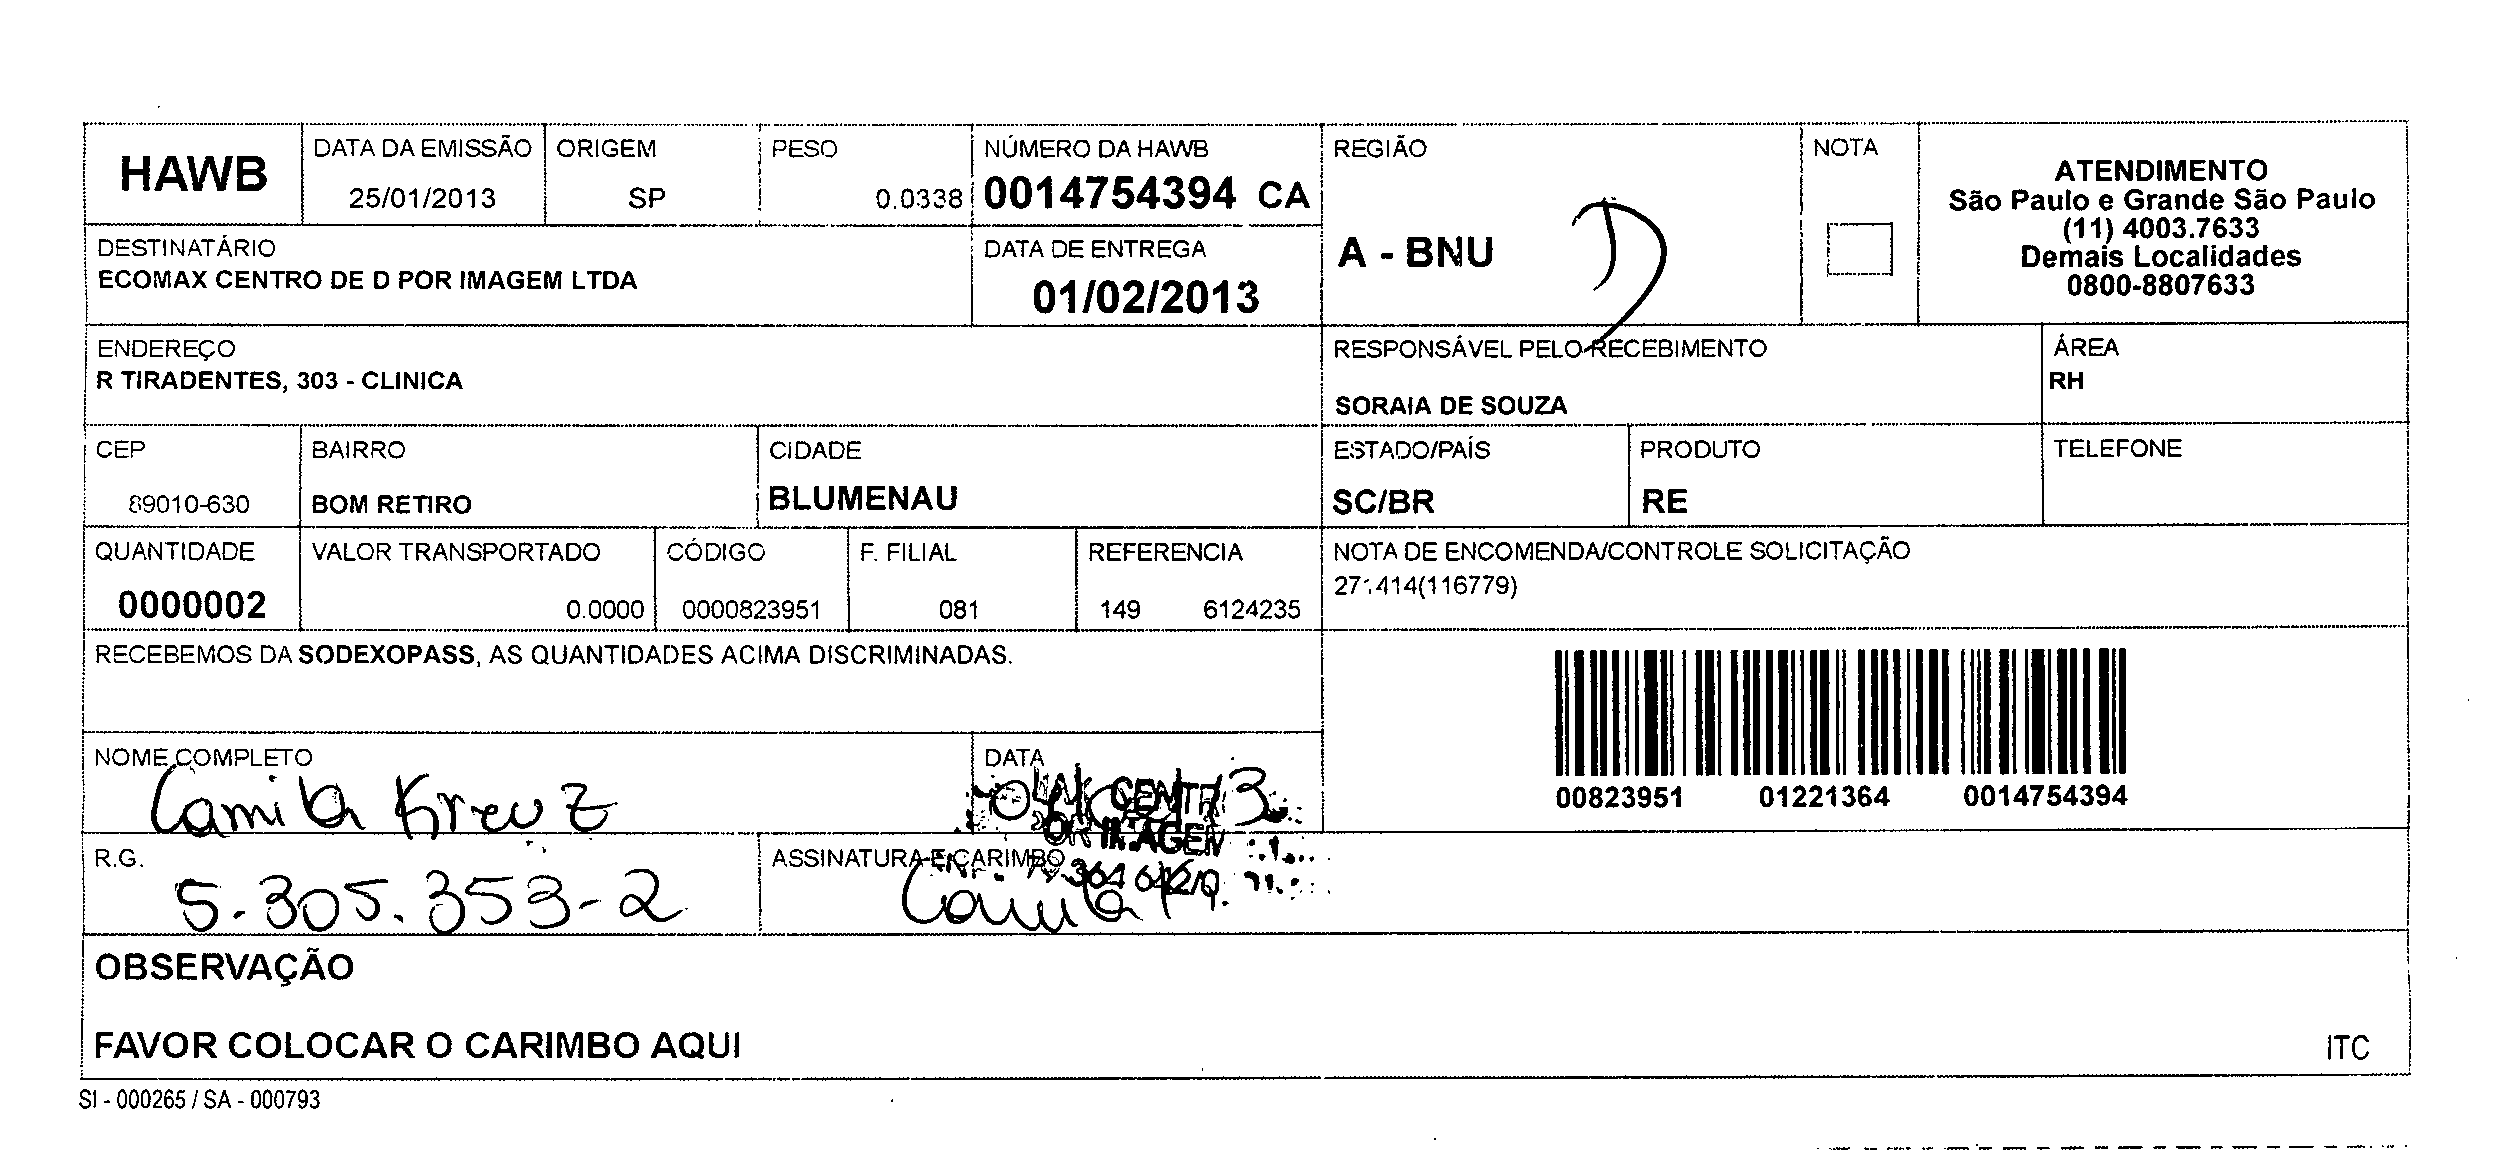 HAWB
DATA DA EMISSÃO
25/01/2013
ORIGEM
SP
PESO
0.0338
NÚMERO DA HAWB
0014754394 CA
REGIÃO
A - BNU
NOTA
ATENDIMENTO
São Paulo e Grande São Paulo
(11) 4003.7633
Demais Localidades
0800-8807633
DESTINATÁRIO
ECOMAX CENTRO DE D POR IMAGEM LTDA
DATA DE ENTREGA
01/02/2013
ENDEREÇO
R TIRADENTES, 303 - CLINICA
RESPONSÁVEL PELO RECEBIMENTO
SORAIA DE SOUZA
ÁREA
RH
CEP
89010-630
BAIRRO
BOM RETIRO
CIDADE
BLUMENAU
ESTADO/PAÍS
SC/BR
PRODUTO
RE
TELEFONE
QUANTIDADE
0000002
VALOR TRANSPORTADO
0.0000
CÓDIGO
0000823951
F. FILIAL
081
REFERENCIA
149 6124235
NOTA DE ENCOMENDA/CONTROLE SOLICITAÇÃO
RECEBEMOS DA SODEXOPASS, AS QUANTIDADES ACIMA DISCRIMINADAS.
00823951 01221364 0014754394
NOME COMPLETO
Camila Kreuz
DATA
R.G.
5.305.353-2
ASSINATURA E CARIMBO
Camila K.
OBSERVAÇÃO
FAVOR COLOCAR O CARIMBO AQUI
ITC
SI - 000265 / SA - 000793